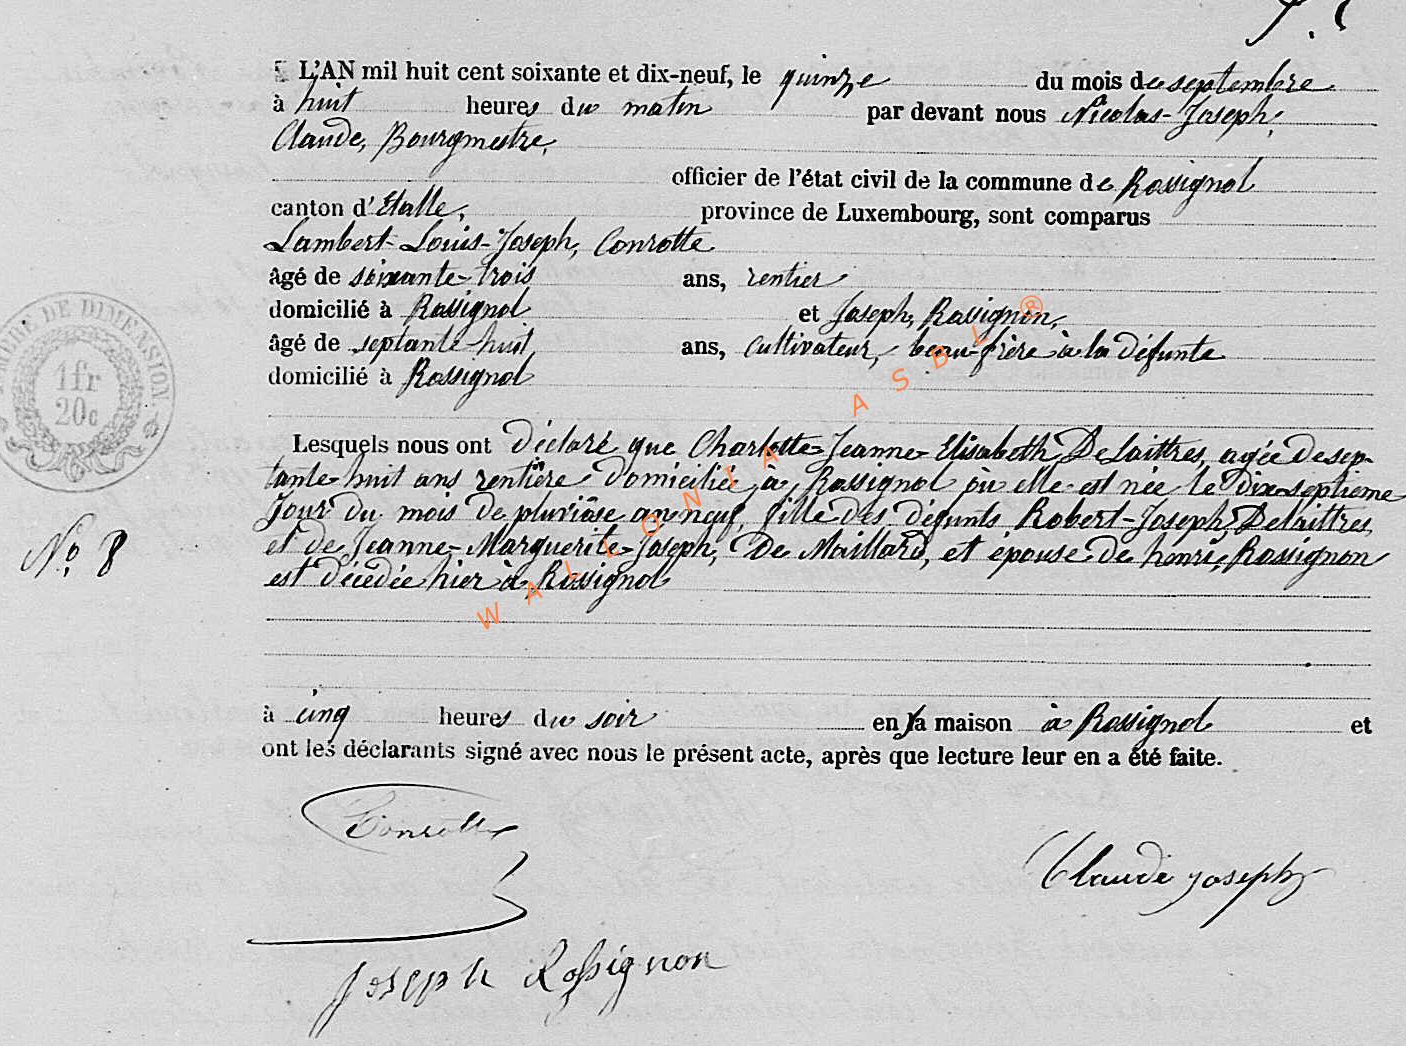 L'AN mil huit cent soixante et dix-neuf, le quinze du mois de septembre
à huit heures du matin par devant nous Nicolas-Joseph,
Claude, Bourgmestre,
officier de l'état civil de la commune de Rossignol
canton d'Etalle, province de Luxembourg, sont comparus
Lambert-Louis-Joseph, Conrotte
âgé de soixante-trois ans, rentier
domicilié à Rossignol et Joseph, Rossignon,
âgé de septante-huit ans, cultivateur, beau-frère à la défunte
domicilié à Rossignol
Lesquels nous ont déclaré que Charlotte-Jeanne-Elisabeth, Delaittres, agée de sep-
tante-huit ans rentière domicilié à Rossignol où elle est née le dix-septieme
Jour du mois de pluviôse an neuf, fille des défunts Robert-Joseph, Delaittres
et de Jeanne-Marguerite-Joseph, De Maillard, et épouse de henri, Rossignon
est décédée hier à Rossignol
à cinq heures du soir en sa maison à Rossignol et
ont les déclarants signé avec nous le présent acte, après que lecture leur en a été faite.
Conrotte
Claude Joseph
Joseph Rossignon
No. 8
DE DIMENSION
1 fr
20 c
WALLONIA ASBL ®